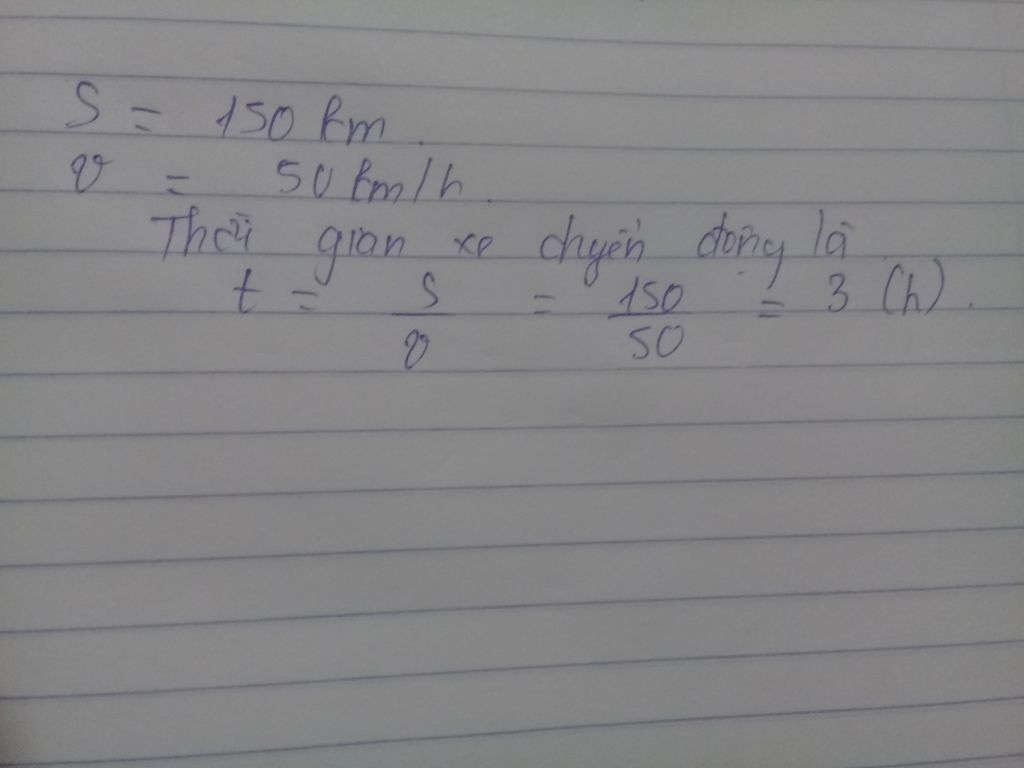 S = 150 km.
v = 50 km/h.
Thời gian xe chyển động là
t = S/v = 150/50 = 3 (h).